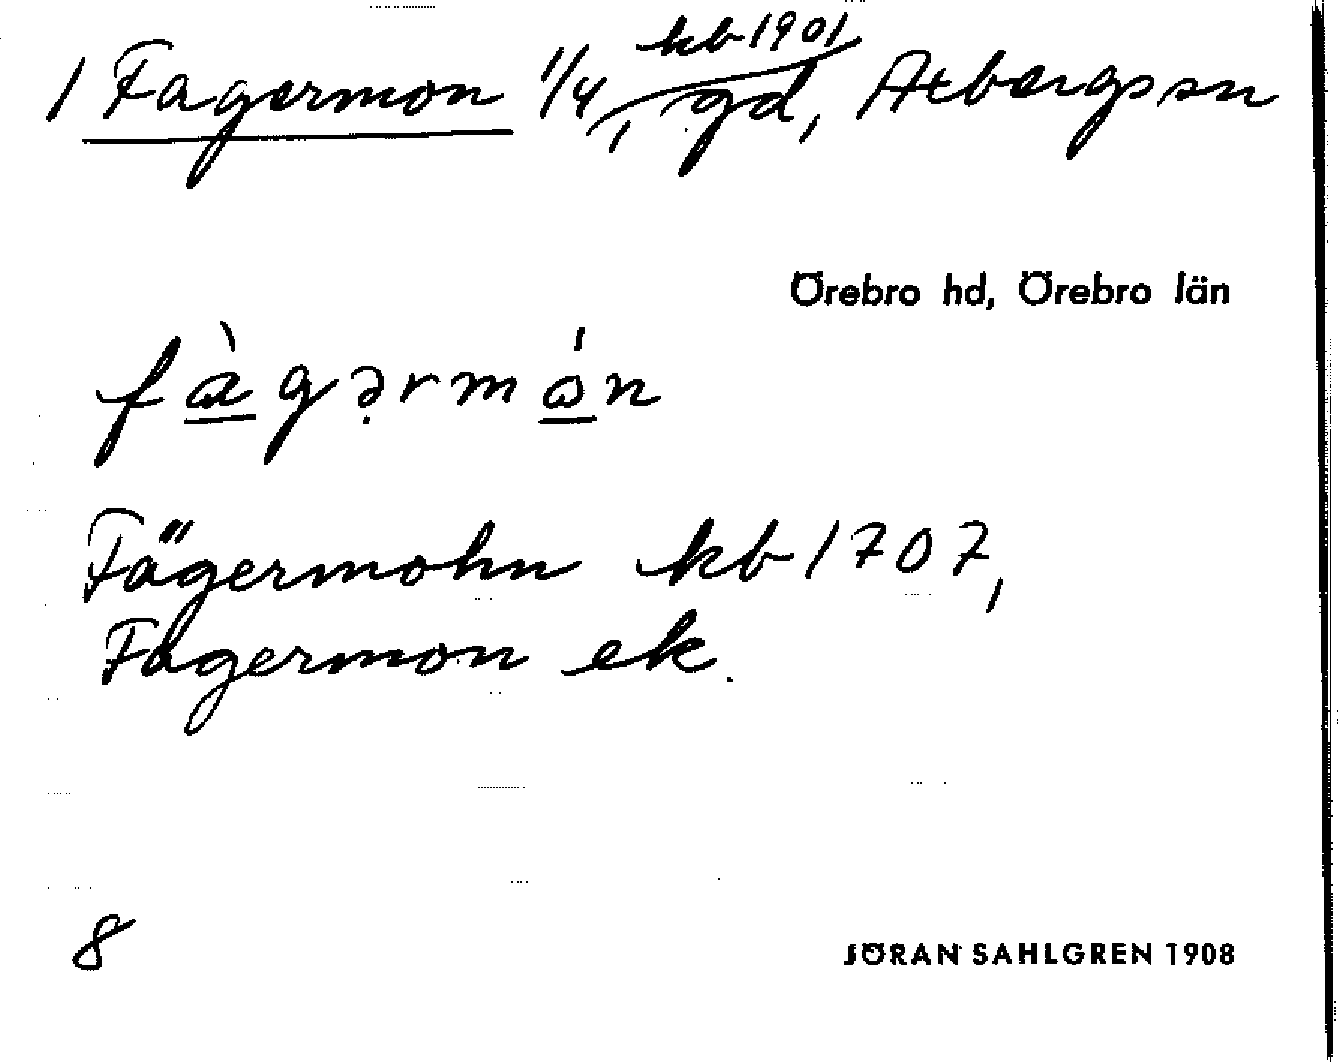 kb 1901
1 Fagermon 1/4, gd, Axbergs sn
Örebro hd, Örebro län
fàgərmón
Fägermohn kb 1707,
Fagermon ek.
8
JÖRAN SAHLGREN 1908